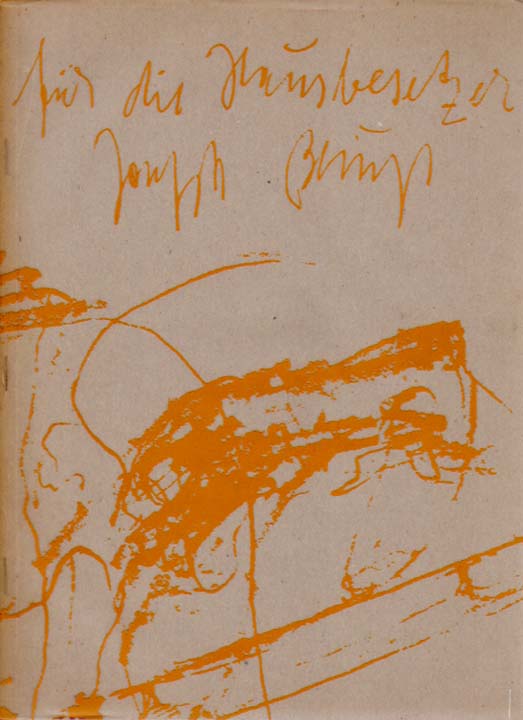 für die Hausbesetzer
Joseph Beuys